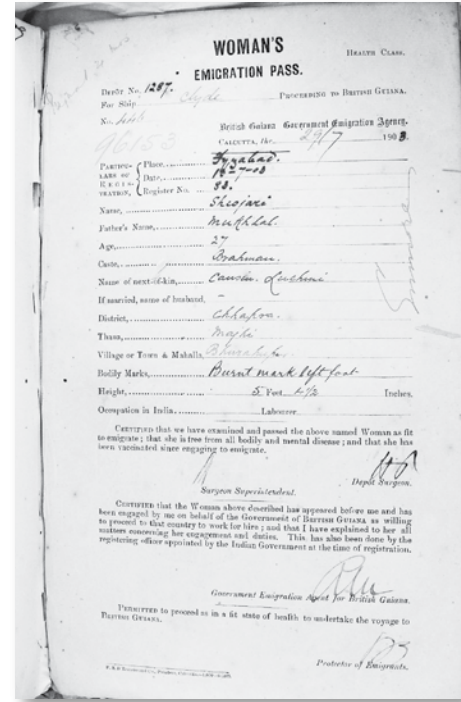 WOMAN'S
HEALTH CLASS.
EMIGRATION PASS.
DEPÔT No. 1287.
PROCEEDING TO BRITISH GUIANA.
For Ship Clyde
No.
British Guiana Government Emigration Agency.
96153
CALCUTTA, the 29/7 1903.
PARTICULARS OF REGISTRATION,
Place, Fyzabad.
Date, 18-7-03
Register No. 83.
Name, Sheojari
Father's Name, Mukhlal
Age, 27
Caste, Brahman.
Name of next-of-kin, Cousin. Luchmi
If married, name of husband, -
District, Chhapra.
Thana, Majhi
Village or Town & Mahalla,
Bodily Marks, Burnt mark left foot
Height, 5 Feet 4½ Inches.
Occupation in India, Labourer
CERTIFIED that we have examined and passed the above named Woman as fit
to emigrate; that she is free from all bodily and mental disease; and that she has
been vaccinated since engaging to emigrate.
Depôt Surgeon.
Surgeon Superintendent.
CERTIFIED that the Woman above described has appeared before me and has
been engaged by me on behalf of the Government of BRITISH GUIANA as willing
to proceed to that country to work for hire; and that I have explained to her all
matters concerning her engagement and duties. This has also been done by the
registering officer appointed by the Indian Government at the time of registration.
Government Emigration Agent for British Guiana.
PERMITTED to proceed as in a fit state of health to undertake the voyage to
BRITISH GUIANA.
Protector of Emigrants.